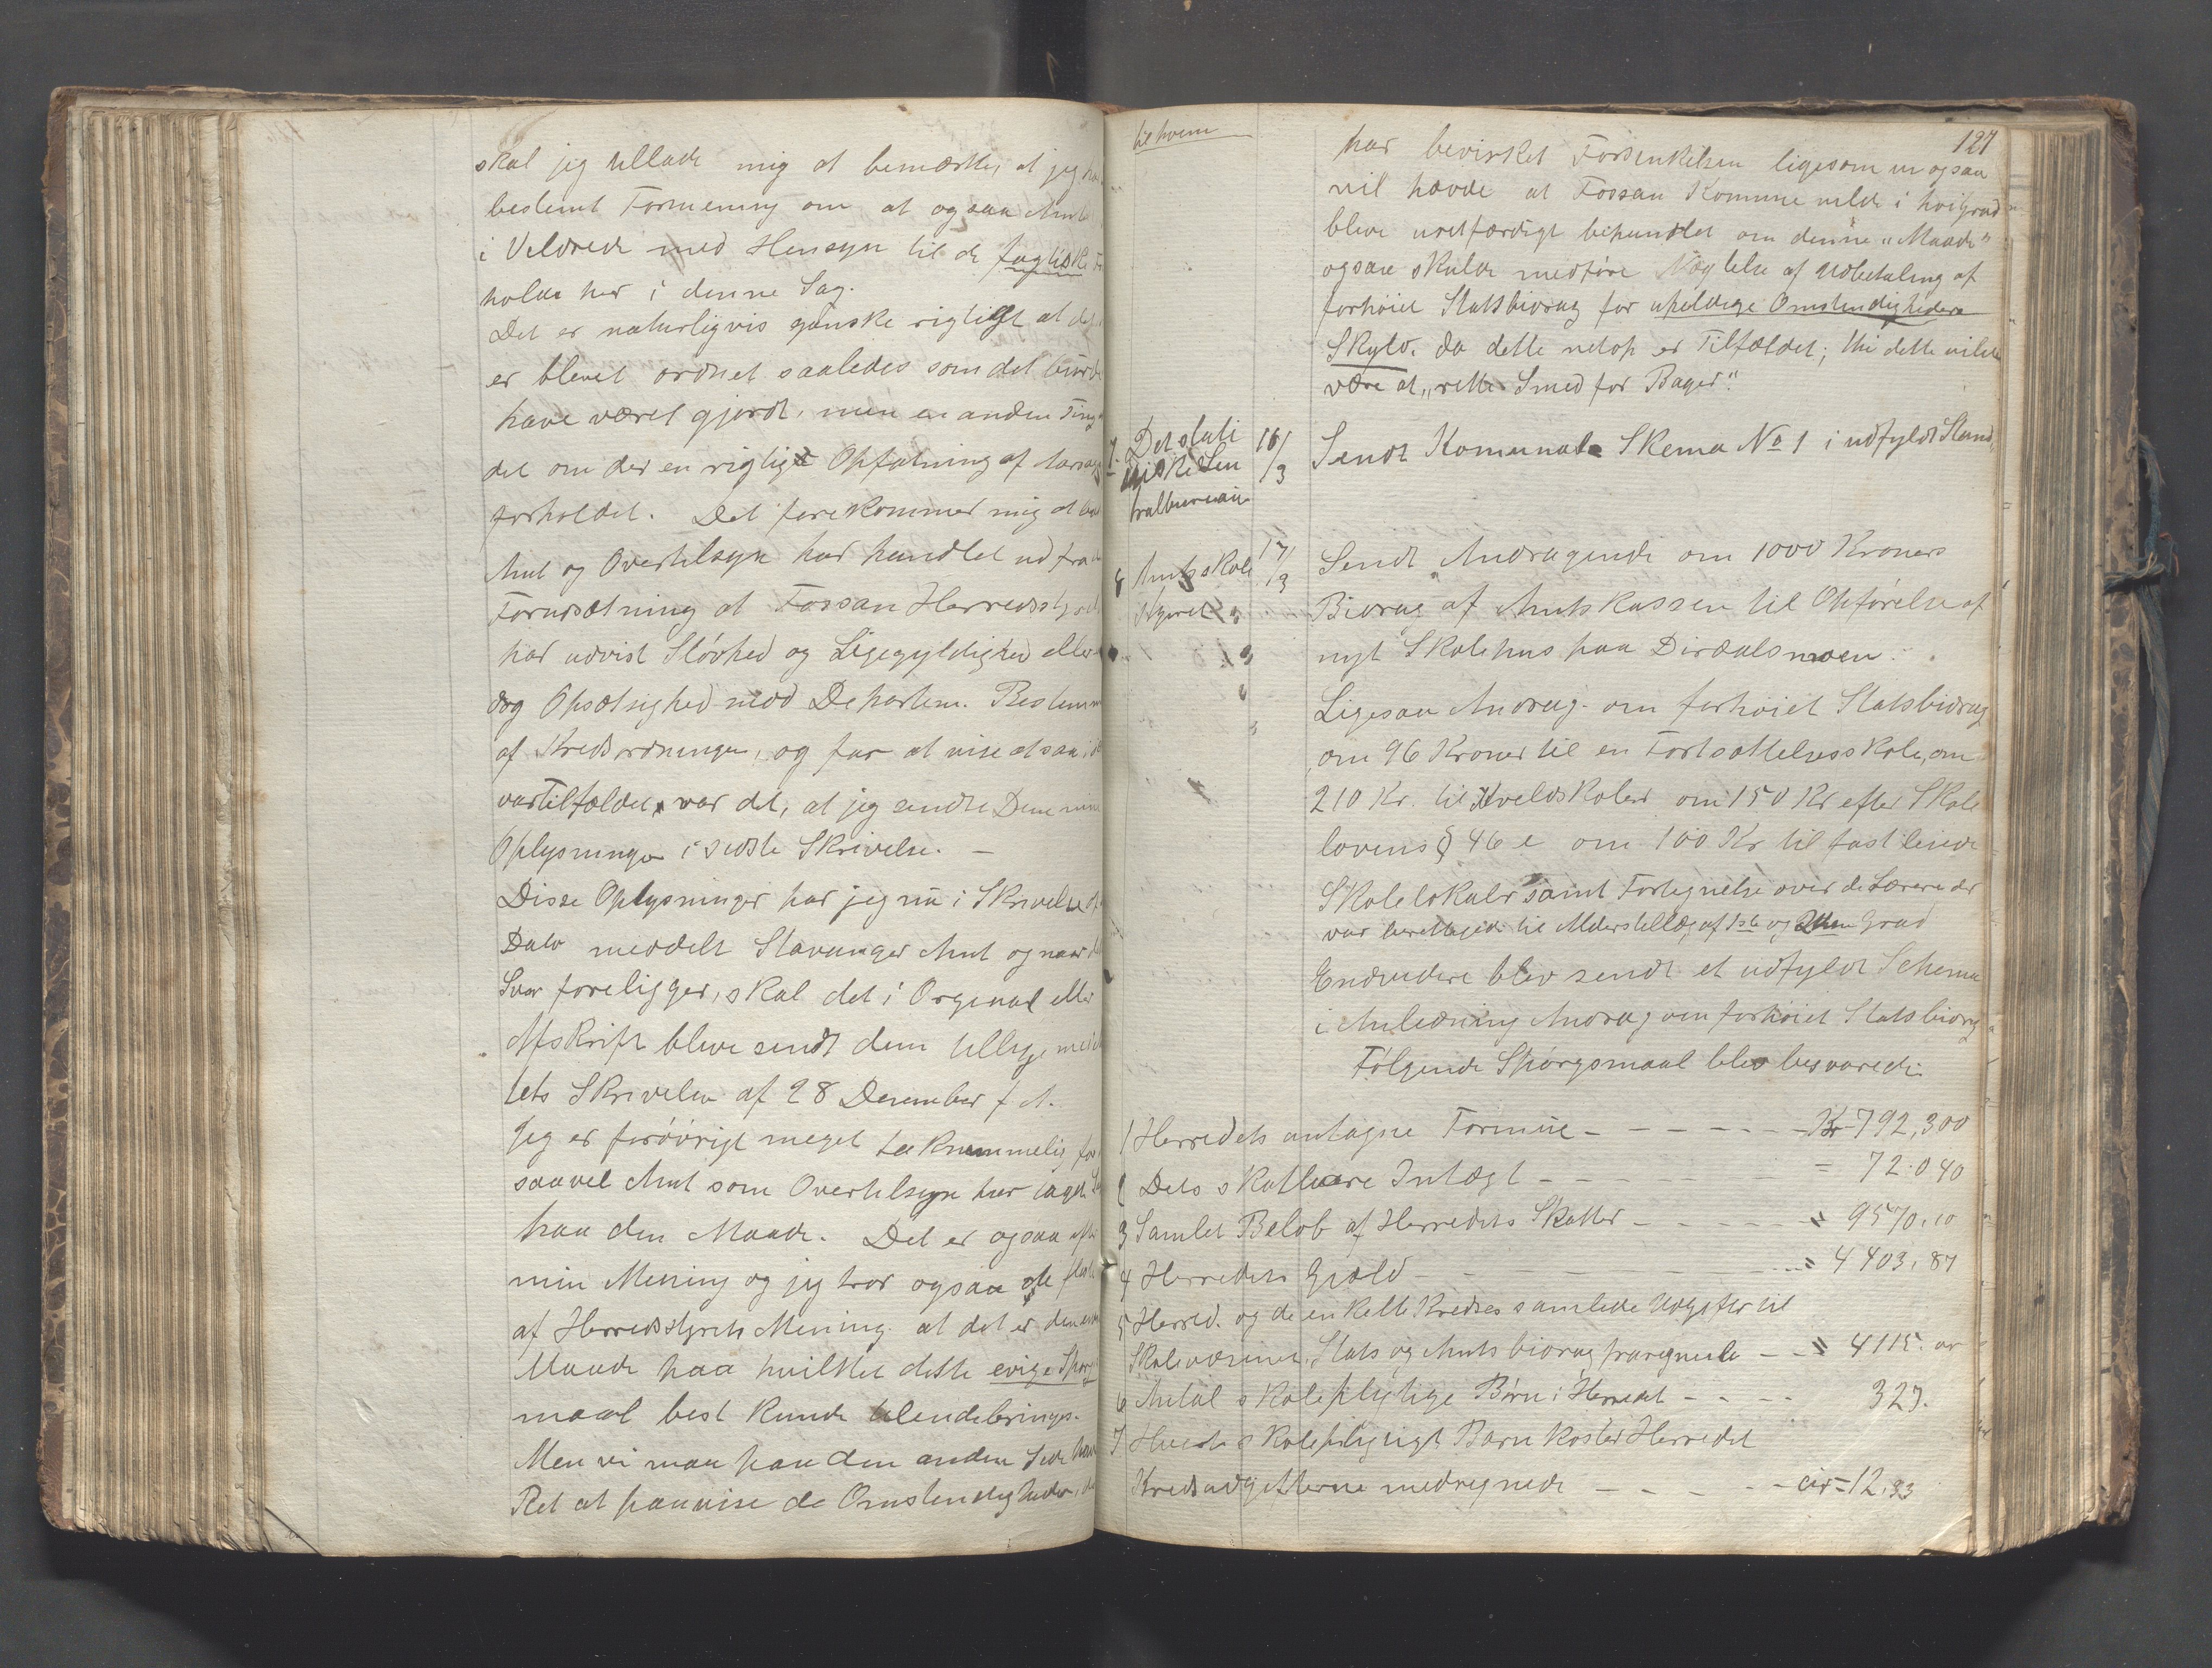 skal jeg tillade mig at bemærke, at jeg har
bestemt Formening om at ogsaa Amtet
i Veldrede med Hensyn til de fagtiske For
holde her i denne Sag.
Det er naturligvis ganske rigtigt at det
er blevet ordnet saaledes som det burde
have været gjordt, men en anden Ting
det om der en rigtigt Opfatning af Aarsags
forholdet. Det forekommer mig at
Amt og Overtilsyn har handlet ud fra
Forudsætning at Fossan Herredsstyrelse
har udvist Sløvhed og Ligegyldighed eller
dog Opsætsighed mod Departem. Bestemm
af Kredsordningen, og for at vise at saa
var Tilfældet, var det, at jeg sendte Dem mine
Oplysninger i sidste Skrivelse. —
Disse Oplysninger har jeg nu i Skrivelse af
Dato meddelt Stavanger Amt og naar
Svar foreligger, skal det i Orginal eller
Afskrift blive sendt dem tillige med
tets Skrivelse af 28 December f A.
Jeg er forøvrigt meget taknemmelig for
saavel Amt som Overtilsyn har taget
paa den Maade. Det er ogsaa efter
min Mening og jeg tror ogsaa de fleste
af Herredsstyrets Mening at det er den eneste
Maade paa hvilket dette evige Spørgs
maal best kunde tilendebringes.
Men vi maa paa den anden Side have
Ret at paavise de Omstendigheder,
127
til hvem
har bevirket Forsenkelsen ligesom vi ogsaa
vil hævde at Fossan Komune vilde i høigrad
blive uretfærdigt behandlet om denne "Maade"
ogsaa skulde medføre Nægtelse af Udbetaling af
forhøiet Statsbidrag for uheldige Omstendigheders
Skyld. da dette netop er Tilfældet; thi dette vilde
være at "rette Smed for Bager".
7. Det stati
stiske Sen
tralbureau
16/3
Sendt Komunale Skema No 1 i udfyldt Stand.
8 Amtsskole
styret
17/3
Sendt Andragende om 1000 Kroners
Bidrag af Amtskassen til Opførelse af
nyt Skolehus paa Dirdalsmoen.
Ligesaa Andrag. om forhøiet Statsbidrag
om 96 Kroner til en Fortsættelsesskole, om
210 Kr. til Kveldskoler om 150 Kr efter Skole
lovens § 46 e om 100 Kr til fast leiede
Skolelokaler samt Fortegnelse over de Lærere der
var berettigede til Alderstillæg af 1ste og 2den Grad
Endvidere blev sendt et udfyldt Schema
i Anledning Andrag om forhøiet Statsbidrag
Følgende Spørgsmaal blev besvarede:
1 Herredets antagne Formue - - - - - - Kr 792,300
2 Dets skatbare Intægt - - - - - = 72.040
3 Samlet Beløb af Herredets Skatter - - - - - " 9570,10
4 Herredets Gjæld - - - " 4403,87
5 Herred. og de enkelte Kredses samlede Udgifter til
Skolevæsenet, Stats og Amts bidrag fraregnede - - " 4115. or
6 Antal skolepligtige Børn i Herredet - - - - 327.
7 Hverts skolepligtigt Barn koster Herredet
Kredsudgifterne medregnede - - - - - cir = 12,33